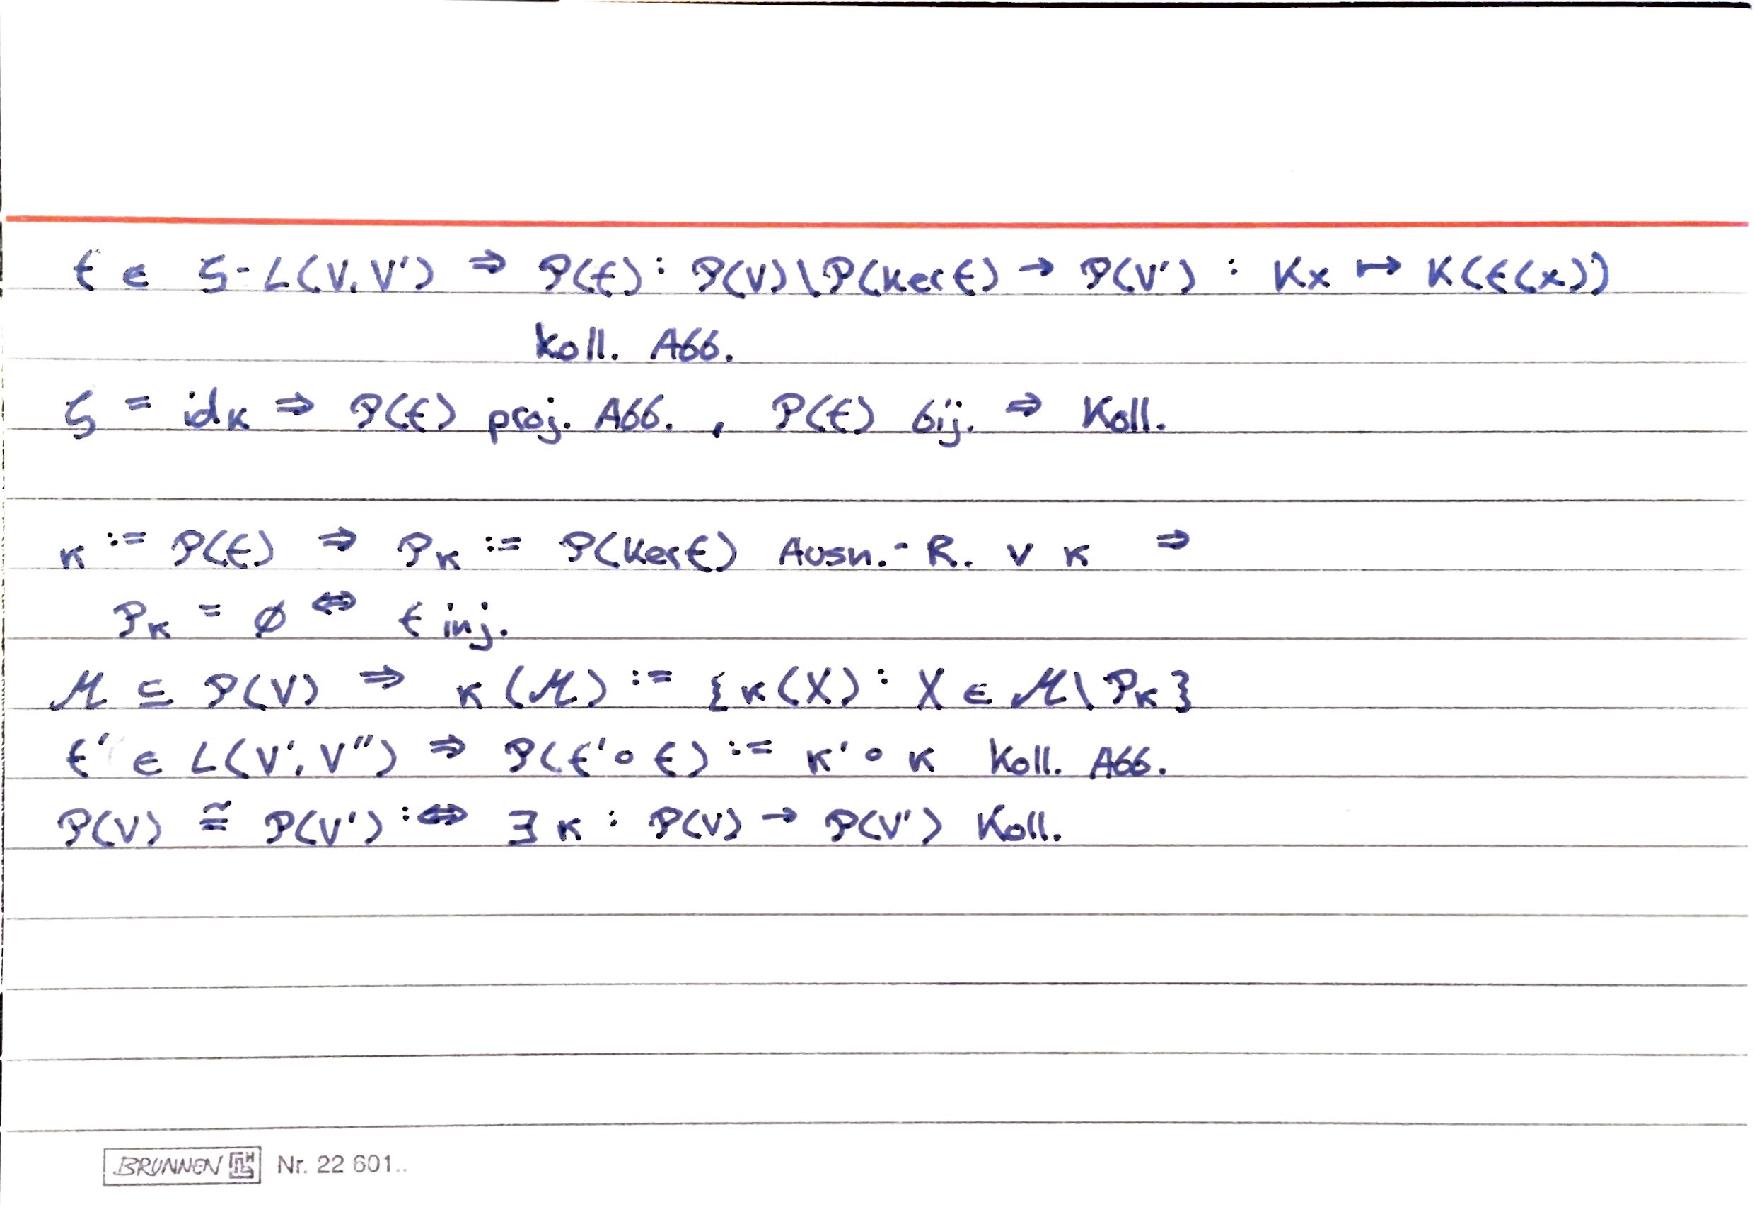 f ∈ ζ-L(V,V') ⇒ P(f): P(V)\P(Ker f) → P(V') : Kx ↦ K(f(x))
Koll. Abb.
ζ = id_K ⇒ P(f) proj. Abb. , P(f) bij. ⇒ Koll.
κ := P(f) ⇒ P_κ := P(Ker f) Ausn.-R. v κ ⇒
P_κ = ∅ ⇔ f inj.
M ⊆ P(V) ⇒ κ(M) := {κ(X) : X ∈ M\P_κ}
f' ∈ L(V',V'') ⇒ P(f'∘f) := κ'∘κ Koll. Abb.
P(V) ≅ P(V') :⇔ ∃ κ : P(V) → P(V') Koll.
BRUNNEN Nr. 22 601..